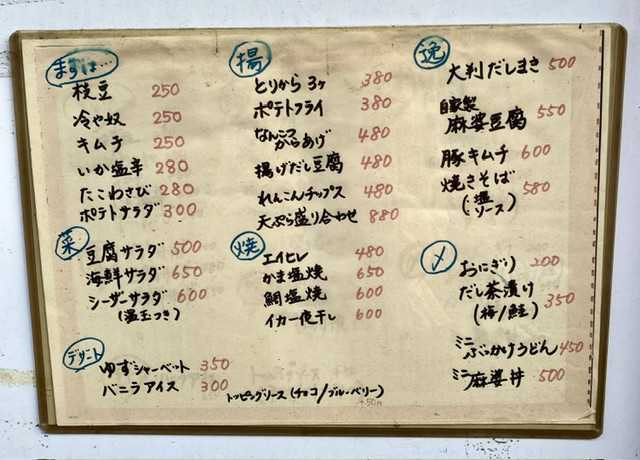 まずは…
枝豆 250
冷や奴 250
キムチ 250
いか塩辛 280
たこわさび 280
ポテトサラダ 300
菜
豆腐サラダ 500
海鮮サラダ 650
シーザーサラダ 600
(温玉つき)
デザート
ゆずシャーベット 350
バニラアイス 300
トッピングソース(チョコ/ブルーベリー)
+50円
揚
とりから3ヶ 380
ポテトフライ 380
なんこつ
からあげ 480
揚げだし豆腐 480
れんこんチップス 480
天ぷら盛り合わせ 880
焼
エイヒレ 480
かま塩焼 650
鯛塩焼 600
イカ一夜干し 600
逸
大判だしまき 500
自家製
麻婆豆腐 550
豚キムチ 600
焼きそば 580
(塩
ソース)
〆
おにぎり 200
だし茶漬け 350
(梅/鮭)
ミニ
ぶっかけうどん 450
ミニ
麻婆丼 500